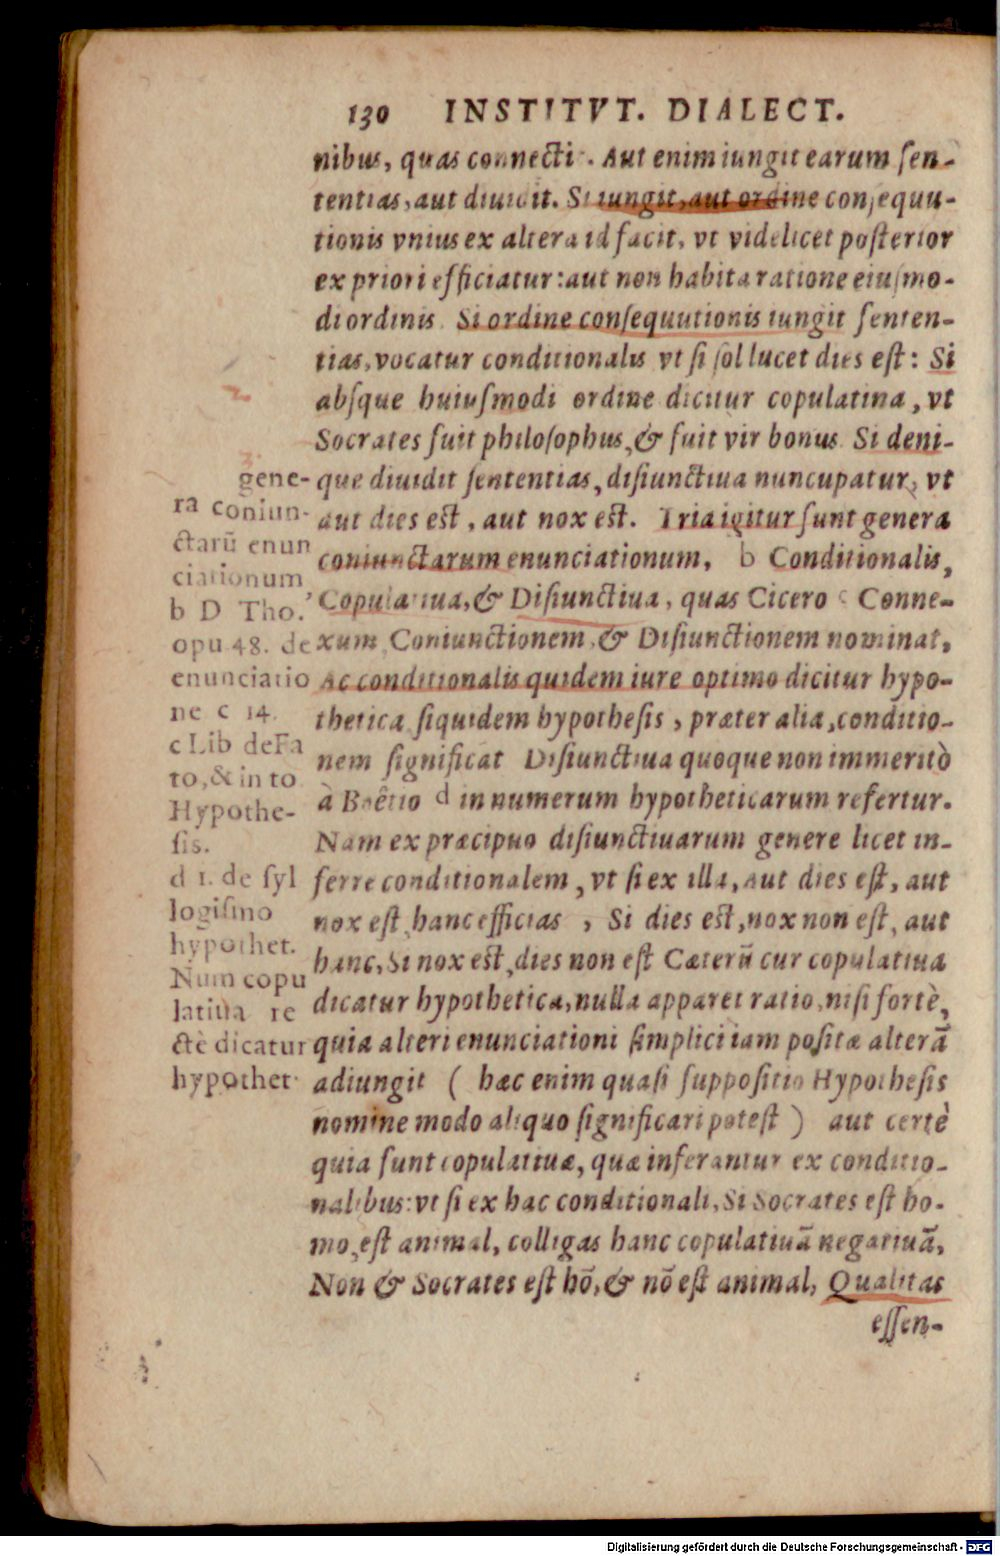 130 INSTITVT. DIALECT.
nibus, quas connectit. Aut enim iungit earum sen-
tentias, aut diuidit. Si iungit, aut ordine consequu-
tionis vnius ex altera id facit, vt videlicet posterior
ex priori efficiatur: aut non habita ratione eiusmo-
di ordinis. Si ordine consequutionis iungit senten-
tias, vocatur conditionalis vt si sol lucet dies est: Si
absque huiusmodi ordine dicitur copulatiua, vt
Socrates fuit philosophus, & fuit vir bonus. Si deni-
que diuidit sententias, disiunctiua nuncupatur, vt
aut dies est, aut nox est. Tria igitur sunt genera
coniunctarum enunciationum, b Conditionalis,
Copulatiua, & Disiunctiua, quas Cicero c Conne-
xum, Coniunctionem, & Disiunctionem nominat,
Ac conditionalis quidem iure optimo dicitur hypo-
thetica, siquidem hypothesis, præter alia, conditio-
nem significat Disiunctiua quoque non immeritò
à Boêtio d in numerum hypotheticarum refertur.
Nam ex præcipuo disiunctiuarum genere licet in-
ferre conditionalem, vt si ex illa, aut dies est, aut
nox est, hanc efficias, Si dies est, nox non est, aut
hanc, Si nox est, dies non est Cæterũ cur copulatiua
dicatur hypothetica, nulla apparet ratio, nisi fortè,
quia alteri enunciationi simplici iam positæ alterã
adiungit ( hæc enim quasi suppositio Hypothesis
nomine modo aliquo significari potest ) aut certè
quia sunt copulatiuæ, quæ inferantur ex conditio-
nalibus: vt si ex hac conditionali, Si Socrates est ho-
mo, est animal, colligas hanc copulatiuã negatiuã,
Non & Socrates est hõ, & nõ est animal, Qualitas
essen-
gene-
ra coniun-
ctarũ enun
ciationum
b D Tho.
opu 48. de
enunciatio
ne c 14.
c Lib de Fa
to, & in to
Hypothe-
sis.
d 1. de syl
logismo
hypothet.
Num copu
latiua re
ctè dicatur
hypothet
Digitalisierung gefördert durch die Deutsche Forschungsgemeinschaft - DFG